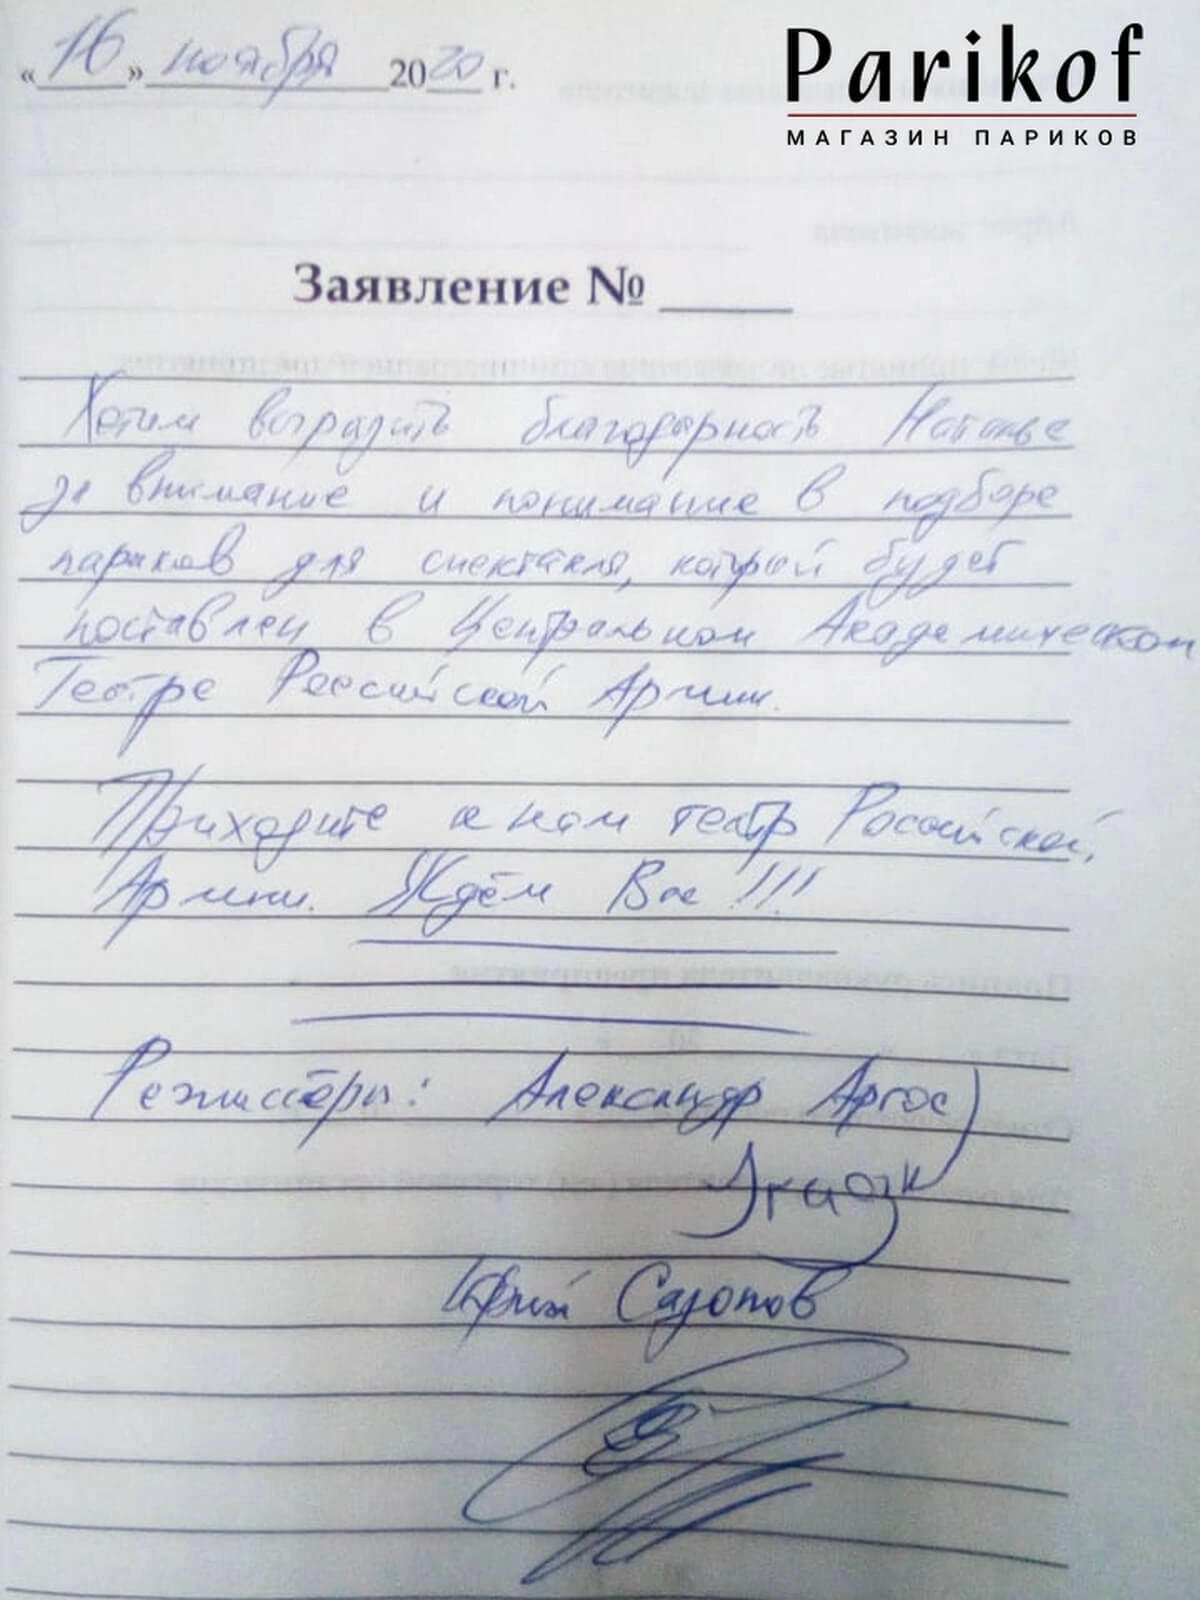 «16» ноября 2020 г.
Parikof
МАГАЗИН ПАРИКОВ
Заявление №
Хотим выразить благодарность Наталье
за внимание и понимание в подборе
париков для спектакля, который будет
поставлен в Центральном Академическом
Театре Российской Армии.
Приходите к нам театр Российской
Армии. Ждём Вас!!!
Режиссёры: Александр Аргос
Юрий Сазонов